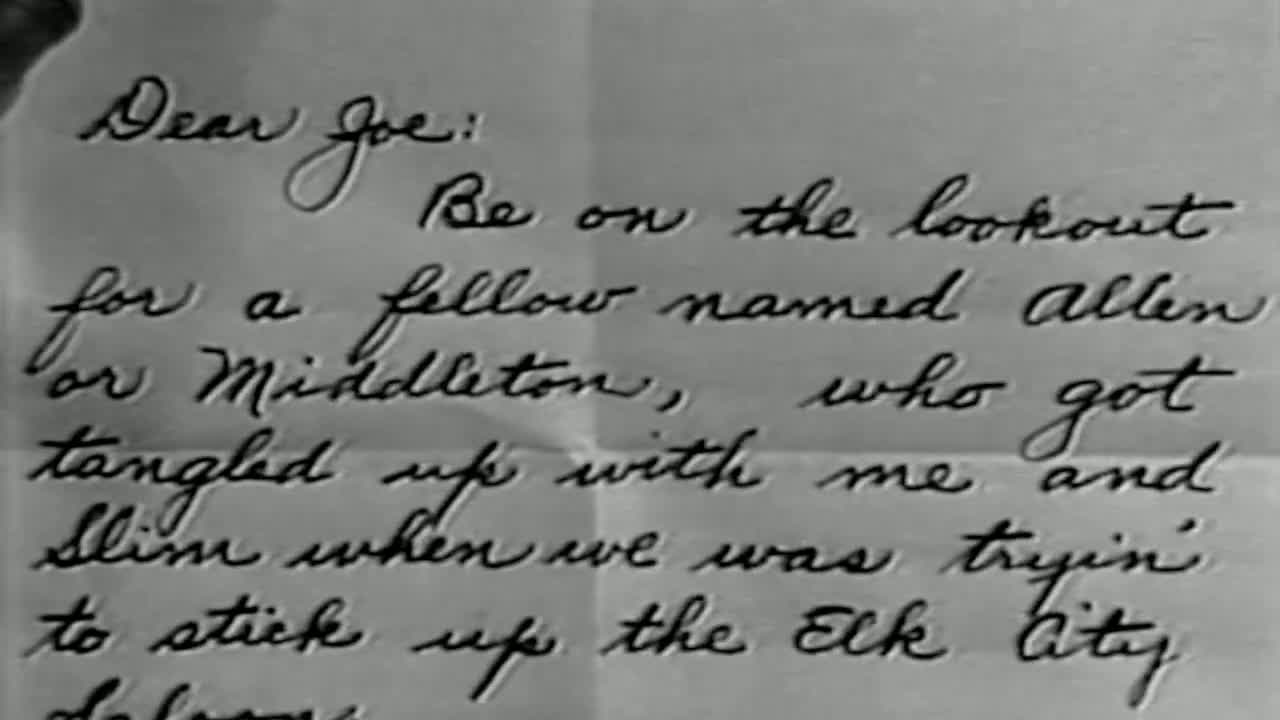 Dear Joe:
Be on the lookout
for a fellow named Allen
or Middleton, who got
tangled up with me and
Slim when we was tryin'
to stick up the Elk City